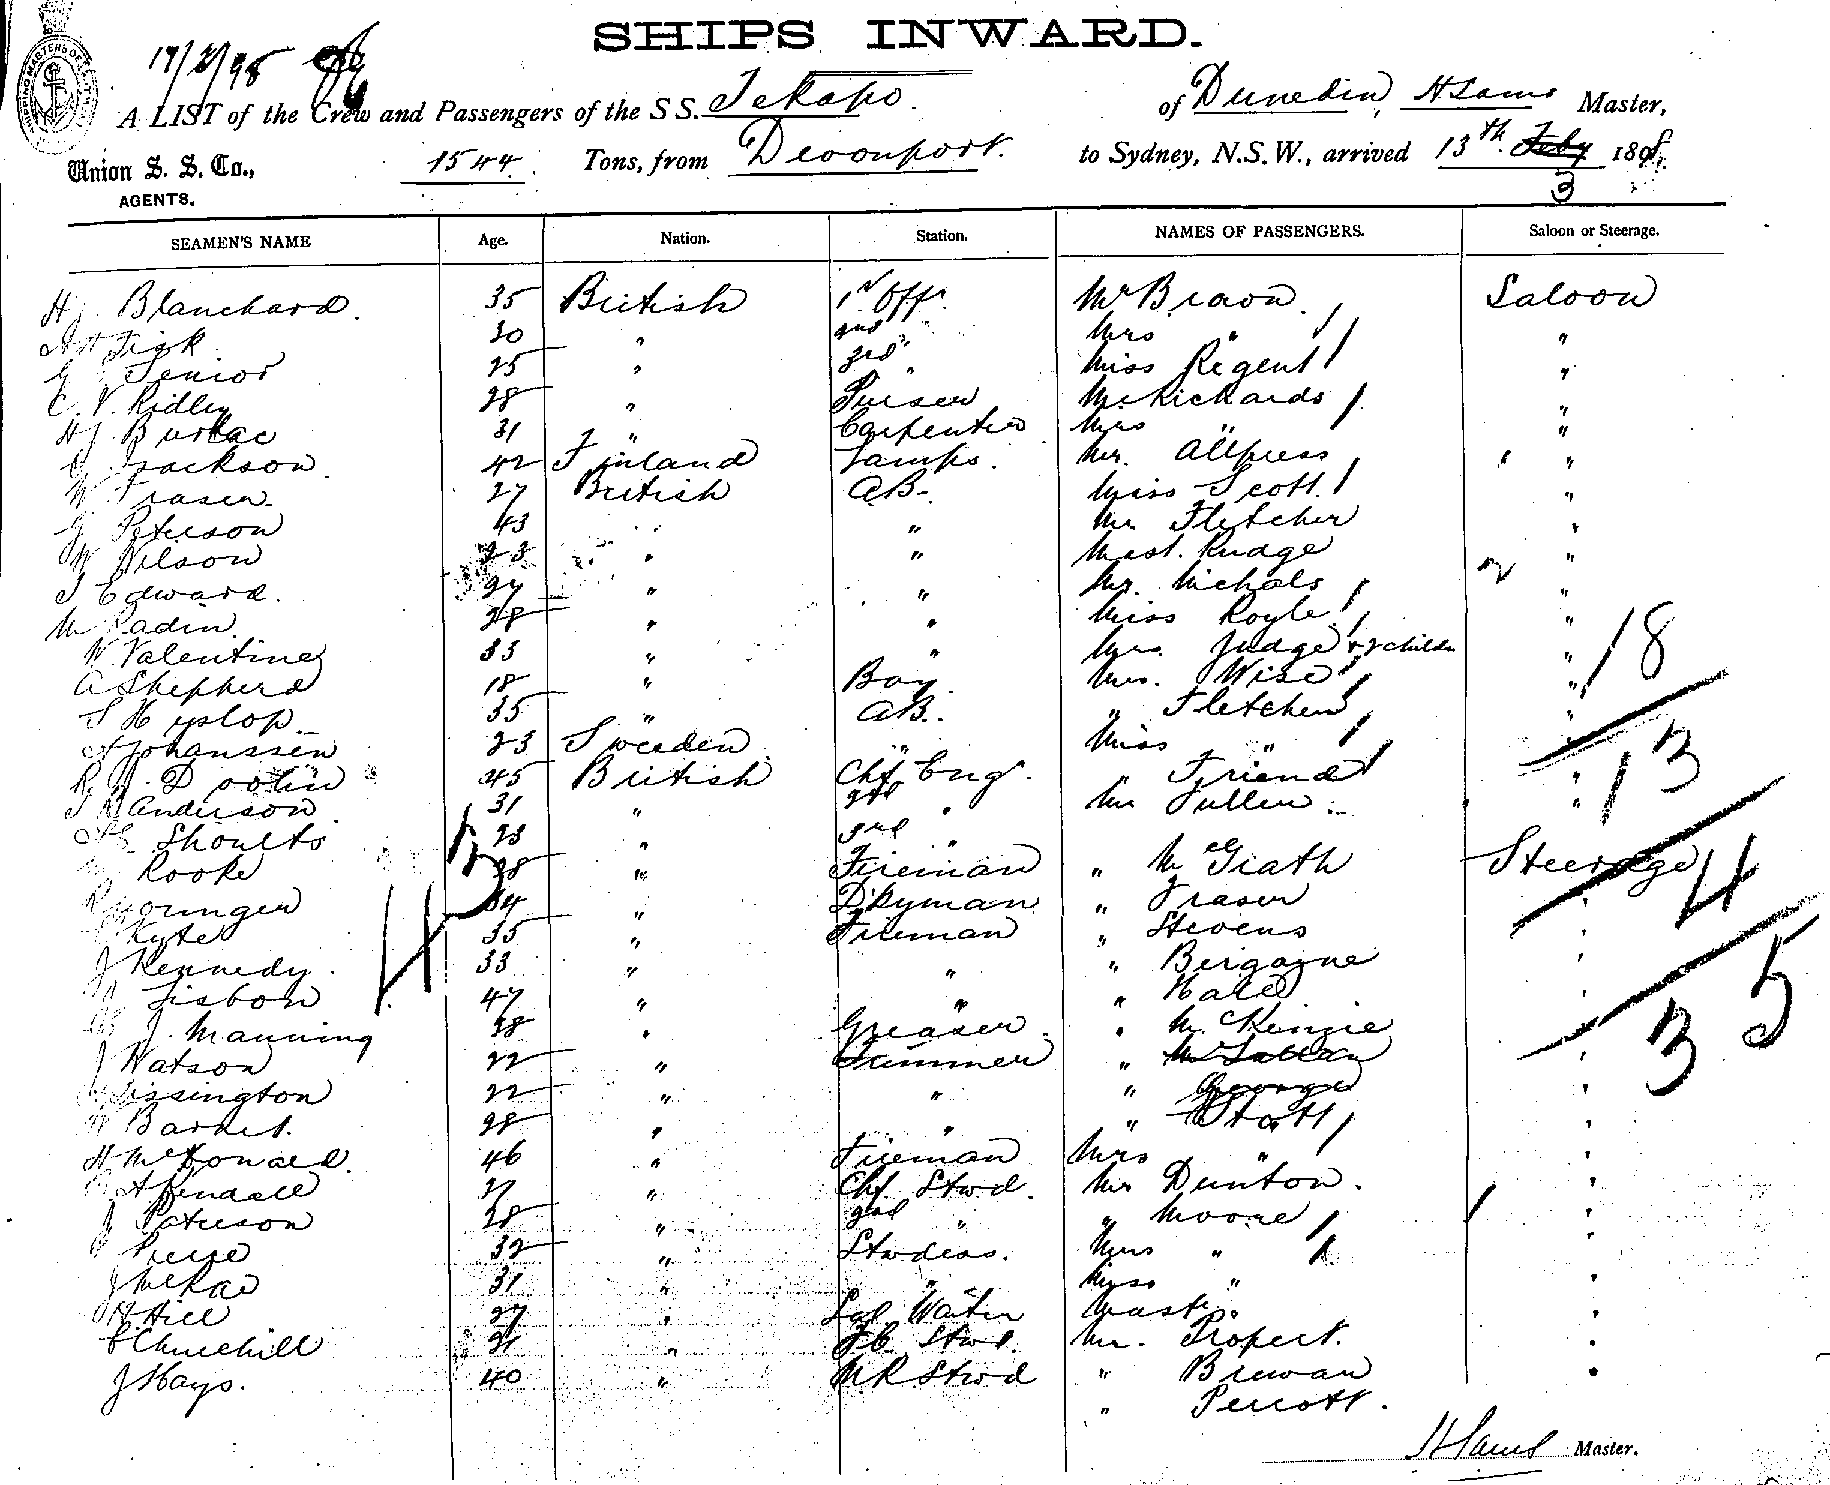 SHIPS INWARD.
17/2/98
A LIST of the Crew and Passengers of the S S. Tekapo. of Dunedin, Master,
Union S. S. Co., 1544. Tons, from Devonport. to Sydney, N.S.W., arrived 13th. Feby 189
AGENTS. 3
SEAMEN'S NAME Age. Nation. Station. NAMES OF PASSENGERS. Saloon or Steerage.
H J Blanchard. 35 British 1st Offr. Mr Brown. Saloon
30 " 2nd " Mrs " "
G Senior 25 " 3rd " Miss Regent "
C. V. Ridley 28 " Purser Mr Richards "
31 " Carpenter Mrs " "
Jackson. 42 Finland Lamps. Mr. Allpress "
W Fraser 27 British AB. Miss Scott. "
G Peterson 43 " " Mr Fletcher "
W Wilson 23 " " Mast. Rudge "
Edward. 27 " " Mr. Nichols "
28 " " Miss Royle "
W Valentine 33 " " Mrs. Judge + 2 childn " 18
A Shepherd 18 " Boy. Mrs. Wise "
S Hyslop 35 " AB. " Fletcher "
A Johanssen 23 Sweeden " Miss " 13
45 British Chf. Eng. " Friend "
Anderson 31 " 2nd " Mr Pullen "
Shoults 23 " 3rd "
Rooke 28 " Fireman " McGrath Steerage 4
34 " D'kyman " Fraser
Kyte 35 " Fireman " Stevens
J Kennedy. 33 " " "
Lisbon 47 " " " Hale 35
J. Manning 28 " Greaser. " McKenzie 3
J Watson 22 " Trimmer "
22 " " " George
W Barnet. 28 " " " Stott
H McDonald. 46 " Fireman Mrs "
A Kendall 27 " Chf. Stwd. Mr Dunton.
J Paterson 28 " 2nd " " Moore
32 " Stwdess. Mrs "
J McRae 31 " " Miss "
H Hill 27 " Waiter Mast. "
C Churchill 21 " Stwd. Mr. Propert.
J Hays. 40 " M R Stwd "
" Perrott.
Master.